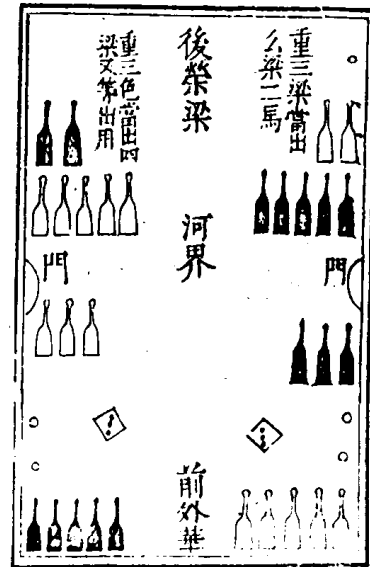 重三梁當出
么梁二馬
門
後榮梁
河界
前外華
重三色當出時
梁又
出用
門